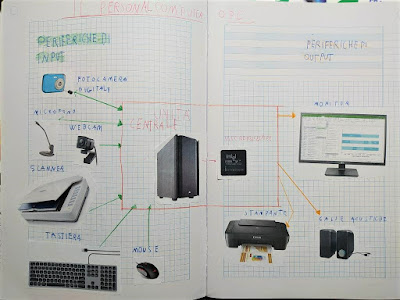 IL PERSONAL COMPUTER
PERIFERICHE DI
INPUT
FOTOCAMERA
DIGITALE
MICROFONO
WEBCAM
SCANNER
TASTIERA
MOUSE
UNITÀ
CENTRALE
intel
PERIFERICHE DI
OUTPUT
MONITOR
STAMPANTE
CASSE ACUSTICHE